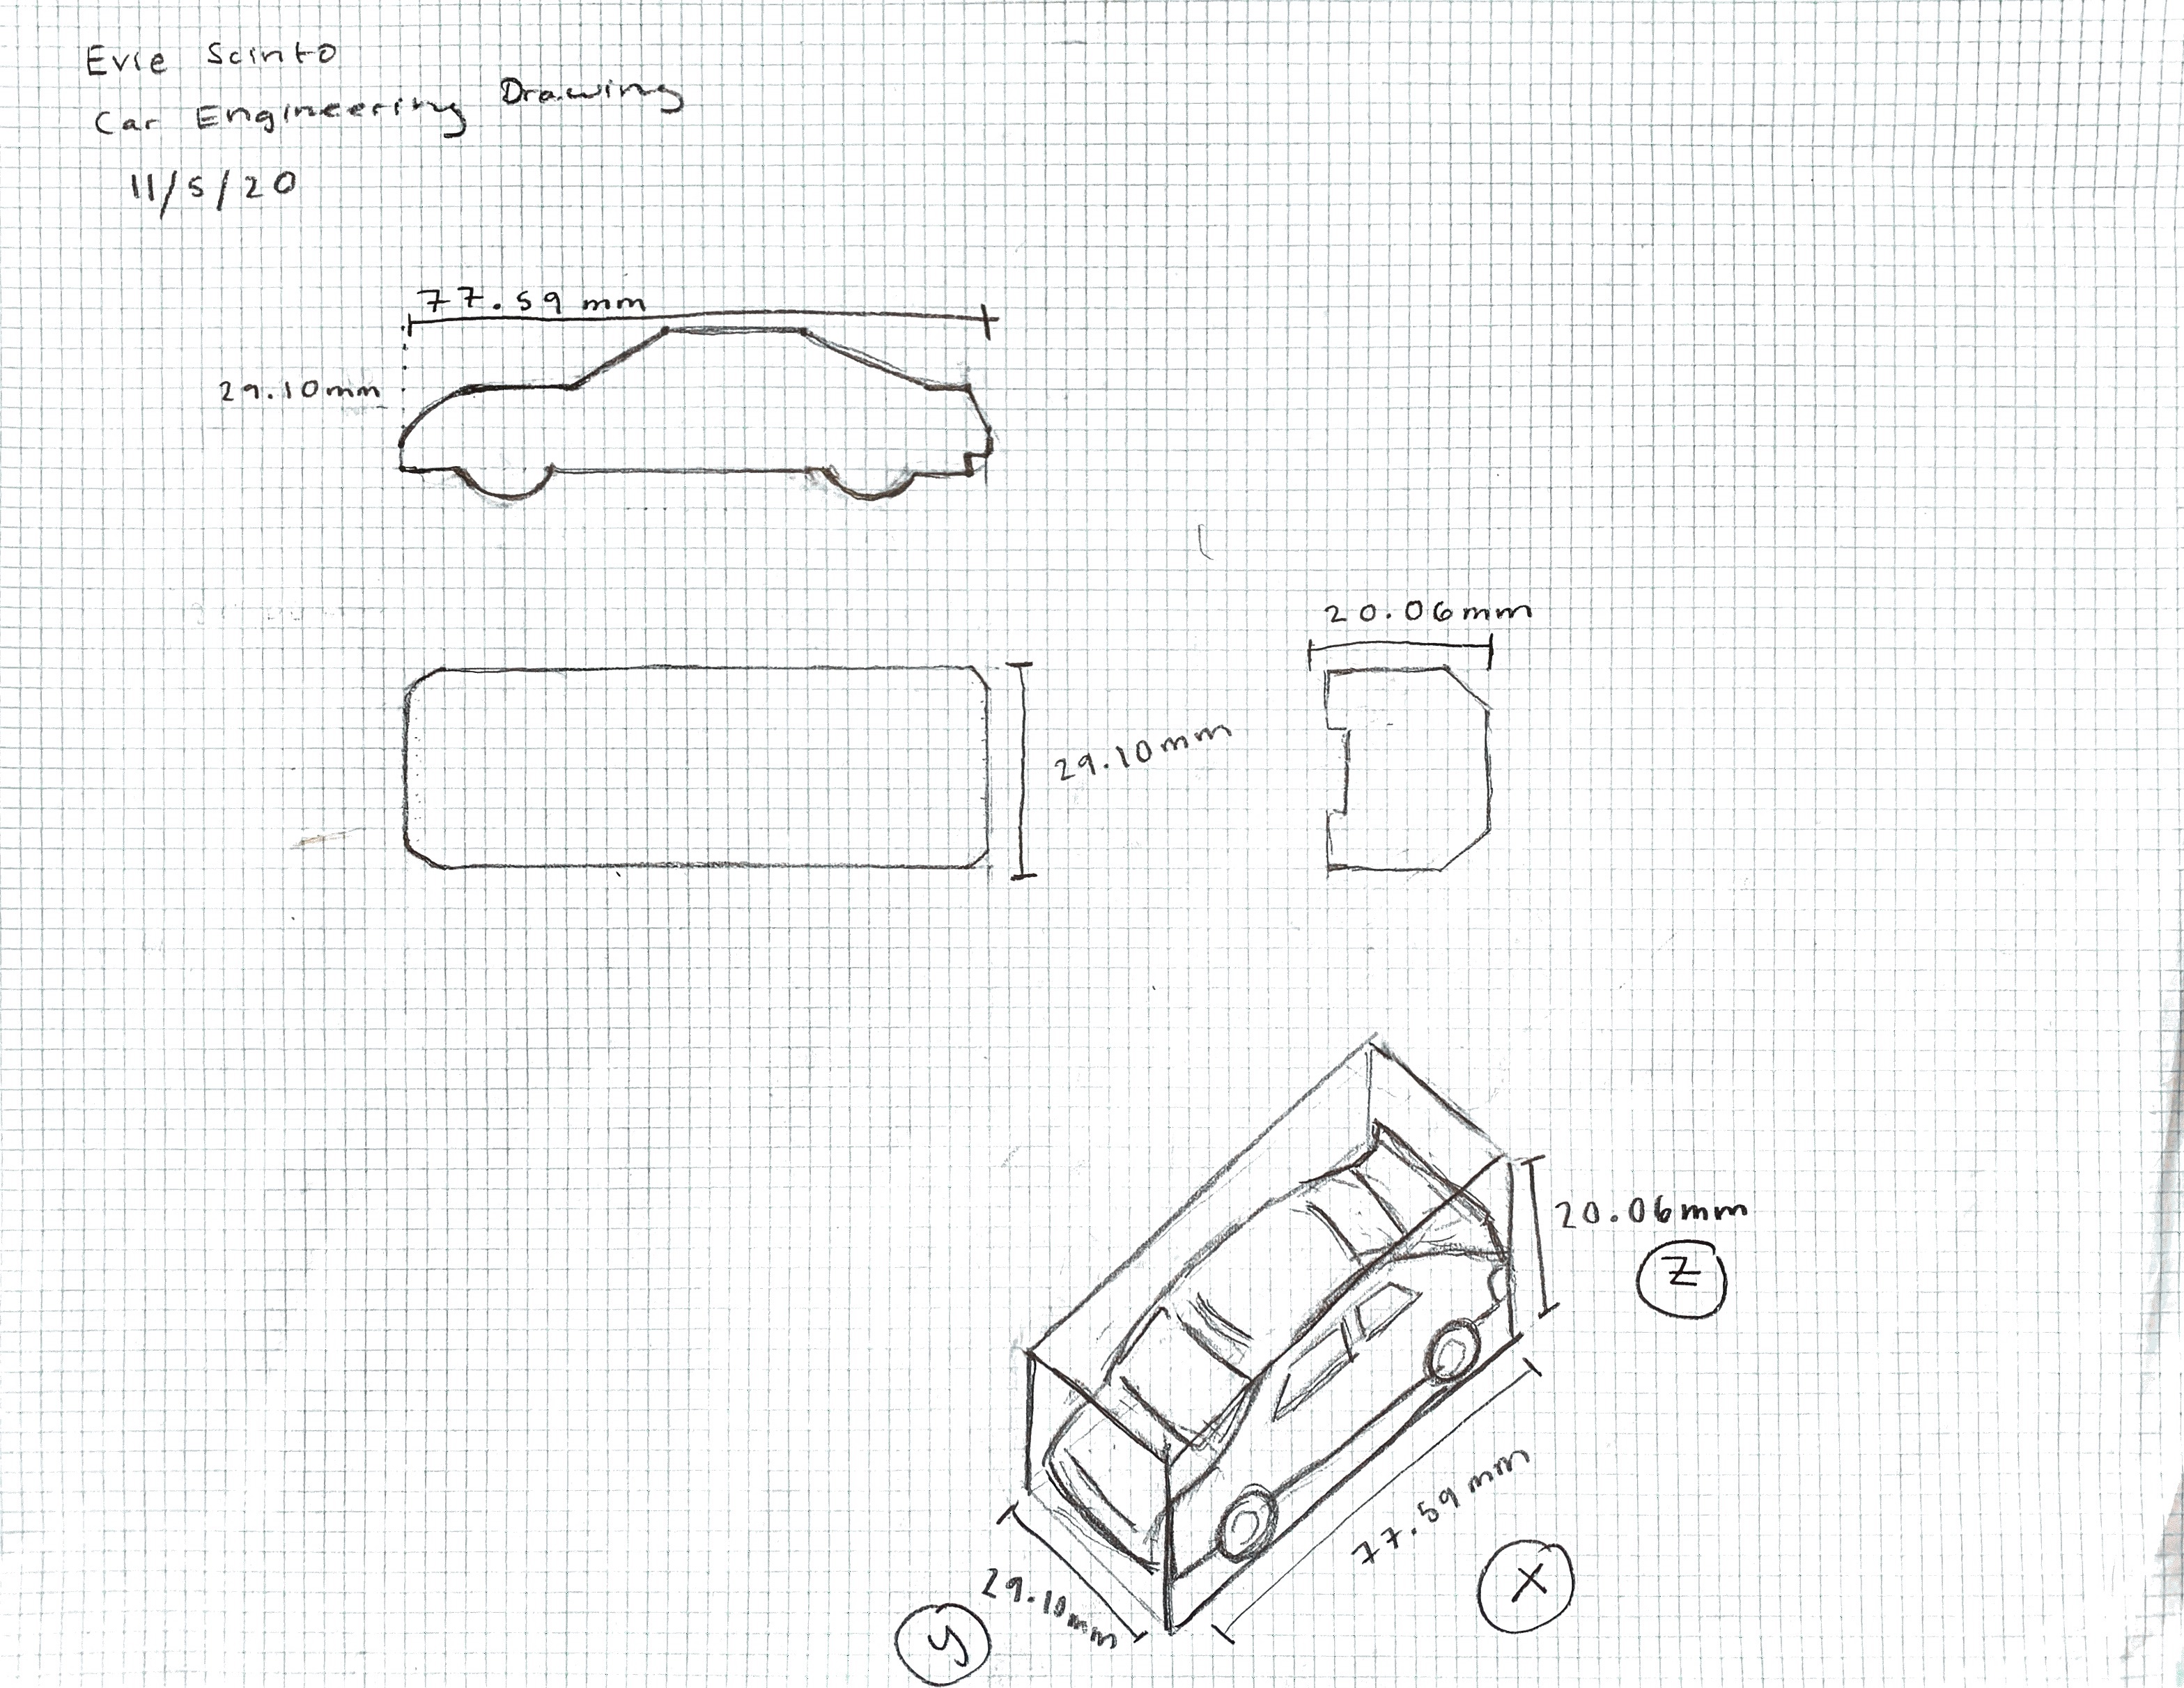 Evie Scinto
Car Engineering Drawing
11/5/20
77.59 mm
29.10mm
20.06mm
29.10mm
20.06mm
Z
77.59 mm
X
29.10mm
y